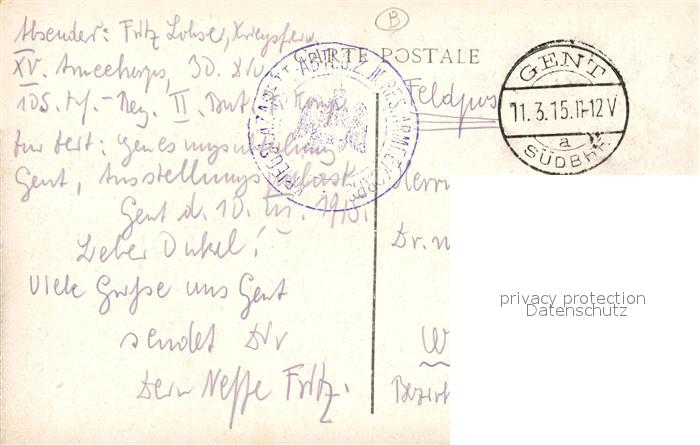 Absender: Fritz Lohse, Kriegsfreiw.
XV. Armeekorps, 30. Div.
105. Inf.-Reg. II. Bat. Komp.
zur Zeit: Genesungsabteilung
Gent, Ausstellungspalast.
Gent d. 10. III. 1915.
Lieber Onkel!
Viele Grüße aus Gent
sendet Dir
Dein Neffe Fritz.
CARTE POSTALE
Feldpos
B
KRIEGSLAZARETT ABT. RES. ARMEEKORPS
GENT
11.3.15.11-12V
a
SÜDBHF
Herrn
Dr. m
W
Bezirk
privacy protection
Datenschutz